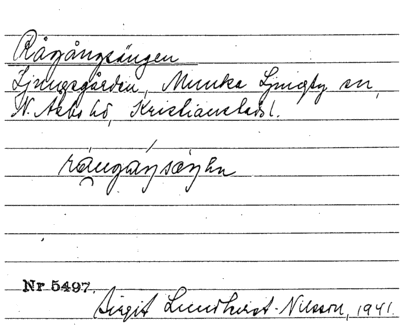 Rågångsängen
Ljungsgården, Munka Ljungby sn,
N. Åsbo hd, Kristianstads l.
Nr 5497.
Birgit Lundkvist-Nilsson, 1941.